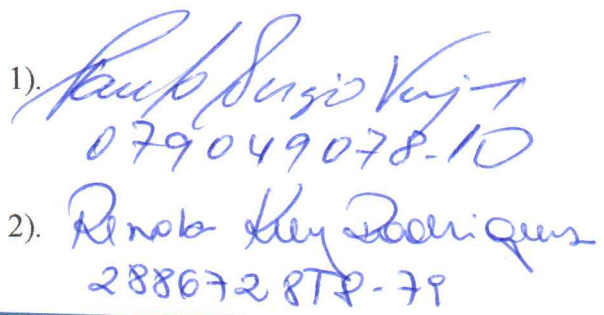 1). Paulo Sergio
079049078-10
2). Renata Key Rodrigues
2886728T8-79